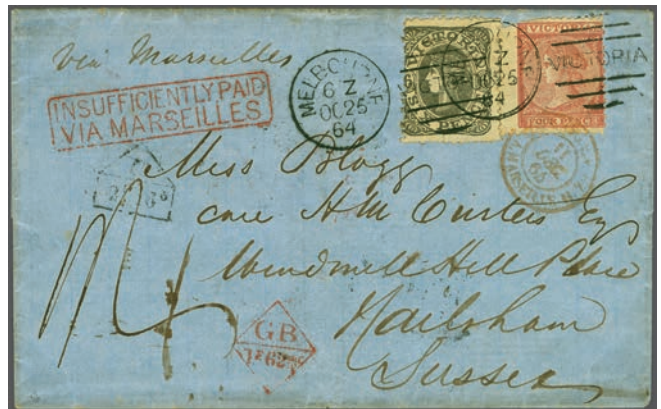 via Marseilles
INSUFFICIENTLY PAID
VIA MARSEILLES
MELBOURNE
6 Z
OC 25
64
VICTORIA
SIX PENCE
Z
OC 25
64
VICTORIA
FOUR PENCE
VICTORIA
11
Miss Blogg
care H M Curteis Esq
Windmill Hill Place
Hailsham
Sussex
GB
1F62